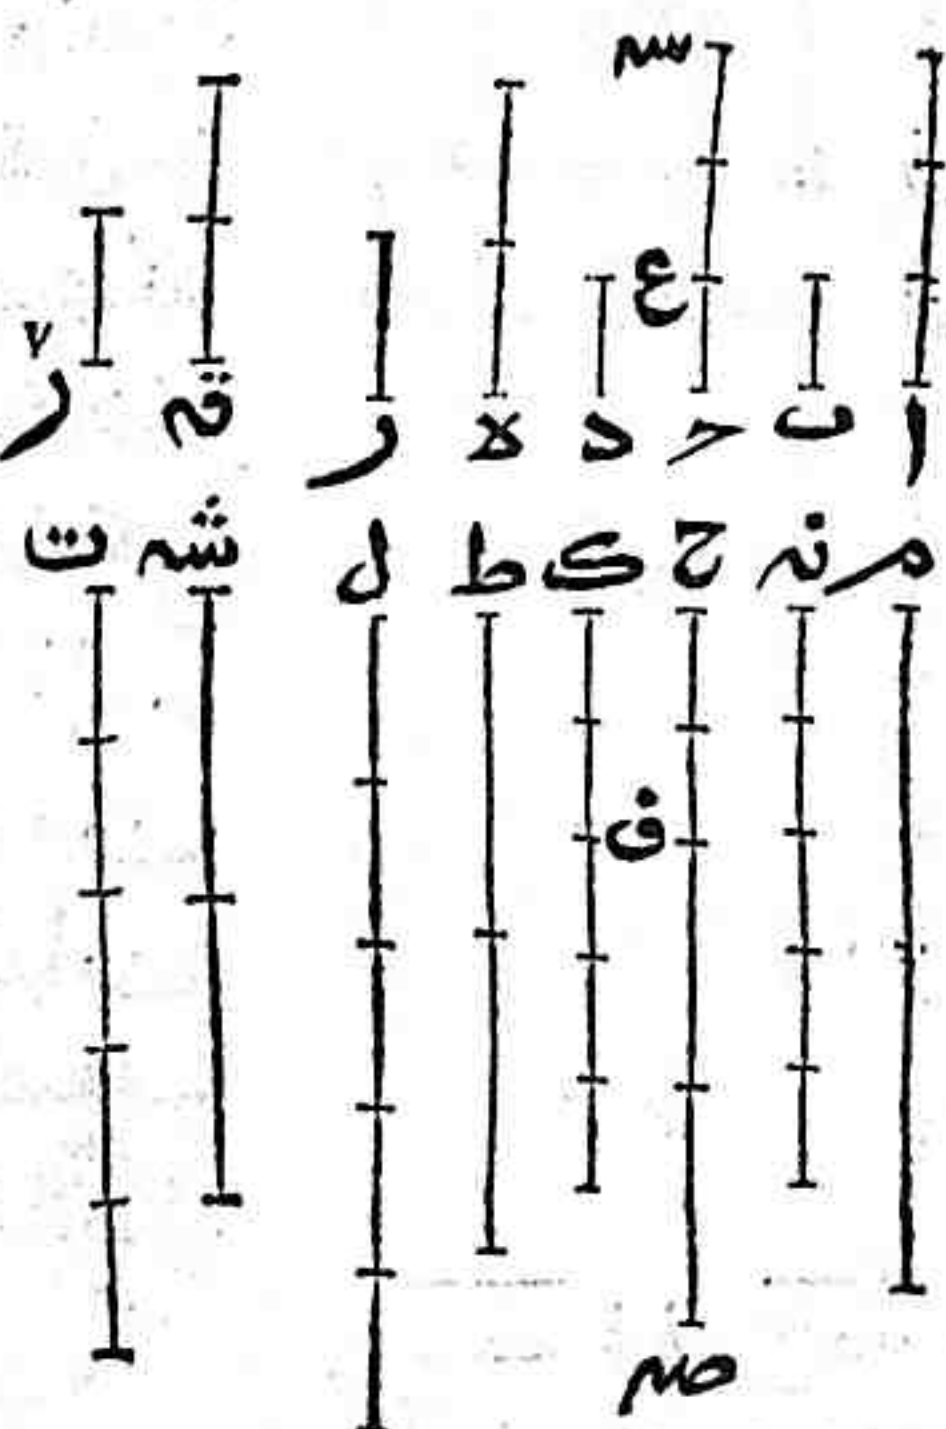 سـ
ع
ا ب حـ د ه ر ق ر
م ن ح ك ط ل ش ت
ف
صـ